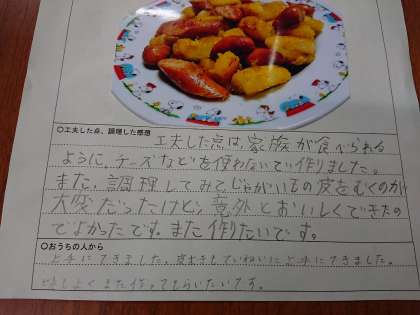 ○工夫した点、調理した感想
工夫した点は、家族が食べられる
ように、チーズなどを使わないで作りました。
また、調理してみてじゃがいもの皮をむくのが
大変だったけど、意外とおいしくできたの
でよかったです。また作りたいです。
○おうちの人から
上手にできました。皮むきもていねいに上手にできました。
よく また 作ってもらいたいです。